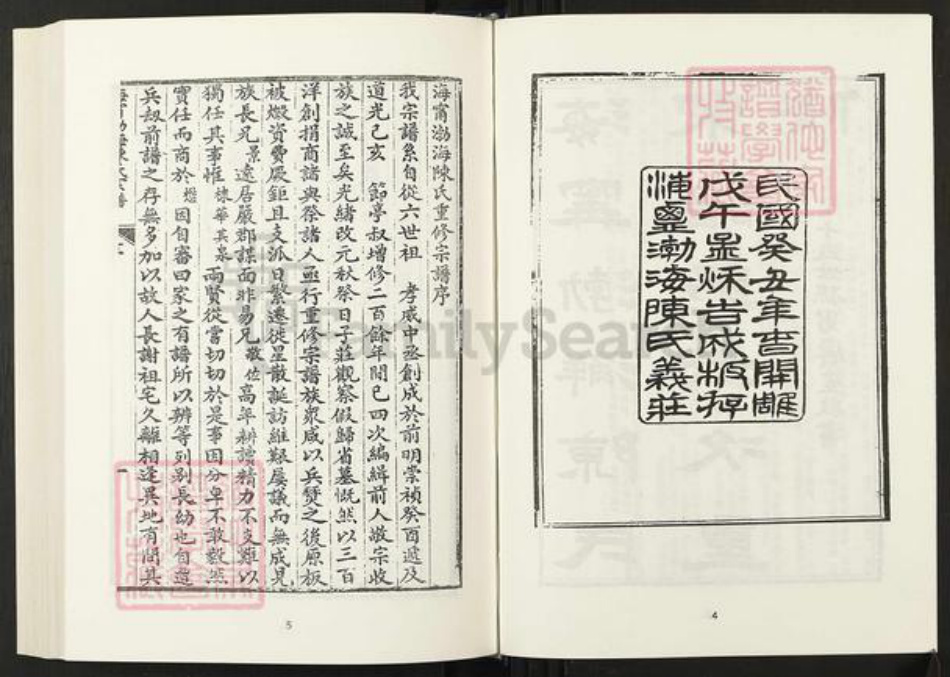 民國癸丑年春開雕
戊午孟秋告成板存
鹽渤海陳氏義莊
4
海甯渤海陳氏重修宗譜序
我宗譜系自從六世祖 孝威中丞創成於前明崇禎癸酉遞及
道光己亥 節亭叔增修二百餘年間已四次編緝前人敬宗收
族之誠至矣光緒改元秋祭日子莊觀察假歸省墓慨然以三百
洋創捐商諸與祭諸人亟行重修宗譜族衆咸以兵燹之後原板
被燬資費厥鉅且支派日繁遷徙星散諮訪維艱屢議而無成見
族長兄景 遠居嚴郡謀面非易兄敬佐高年耕讀精力不支難以
獨任其事惟棣華其泉兩賢從嘗切切於是事因分卑不敢毅然
實任而商於 因自審曰家之有譜所以辨等列別長幼也自遭
兵劫前譜之存無多加以故人長謝祖宅久離相逢異地有問其
5
FamilySearch